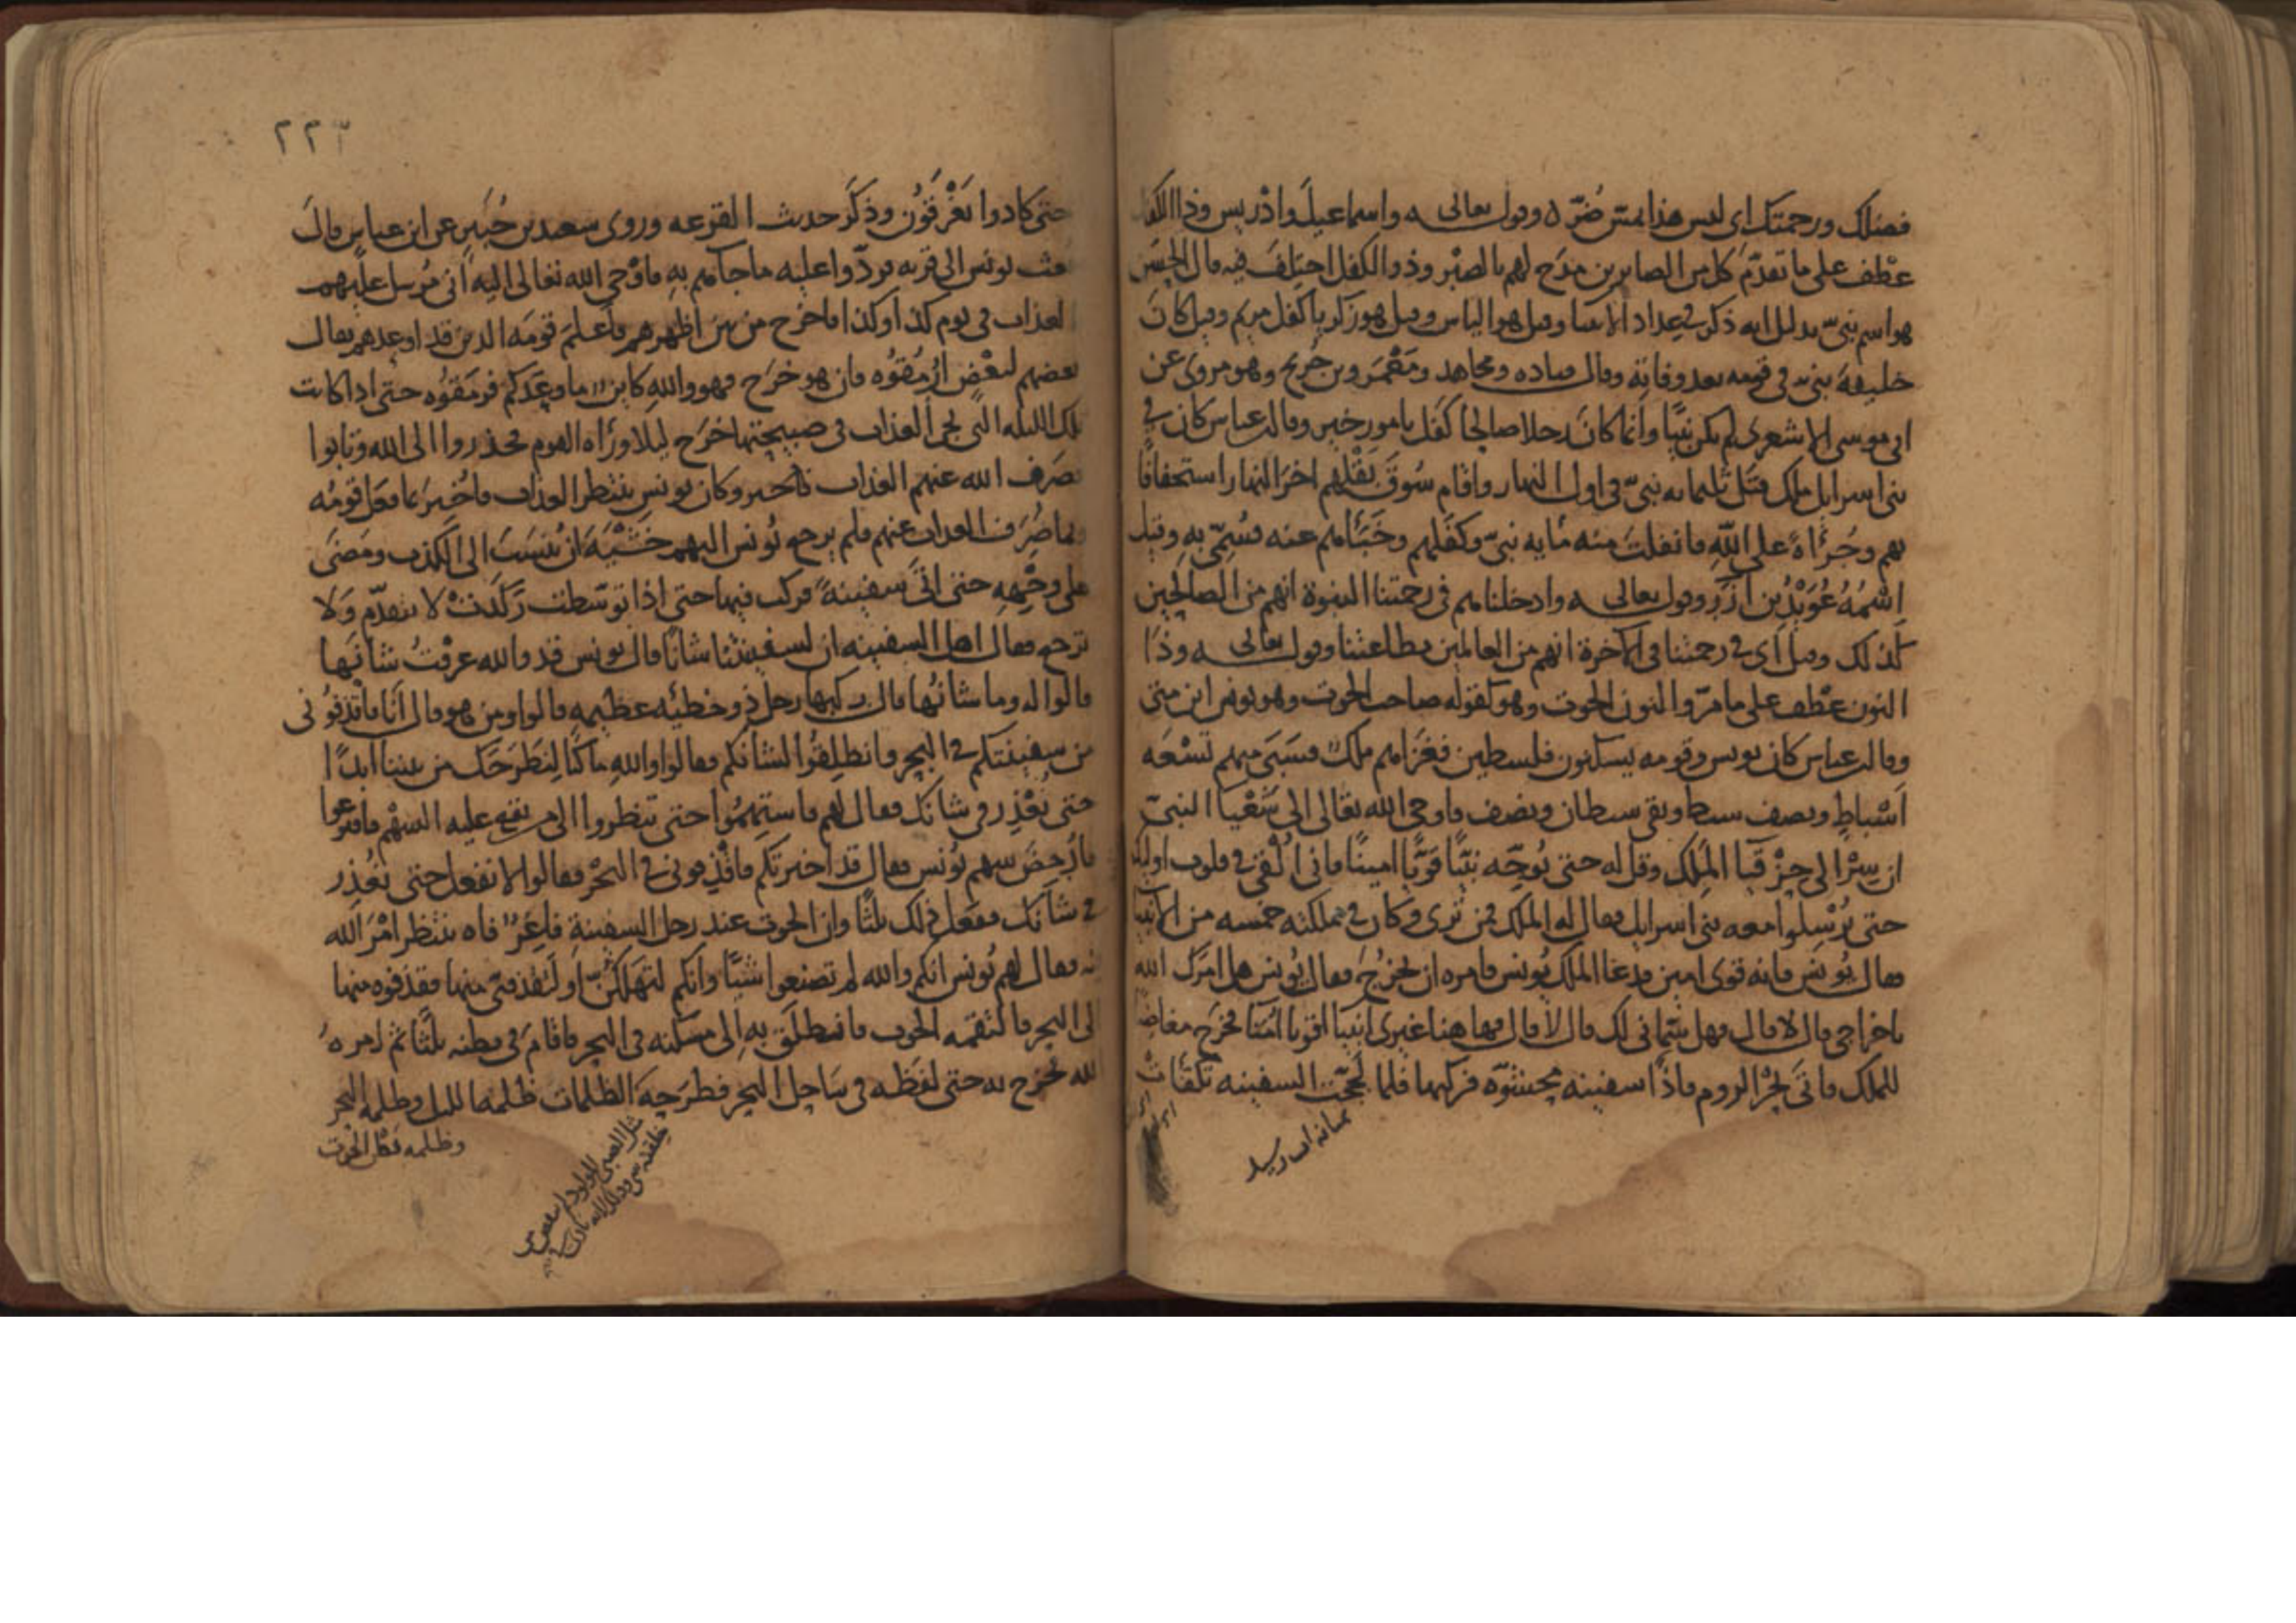 فضلك ورحمتك اي ليس هذا بمتس ضر ه وقوله تعالى واسماعيل وادريس وذا الكفل
عطف على ما تقدم كل من الصابرين مدح لهم بالصبر وذو الكفل اختلف فيه قال الحسن
هو اسم نبي بدليل انه ذكر في عداد الانبيا وقيل هو الياس وقيل هو زكريا كفل مريم وقيل كان
خليفة نبي في قومه بعد وفاته وقال قتاده ومجاهد ومعمر وبن جريح وهو مروى عن
ابي موسى الاشعري لم يكن نبيا وانما كان رجلا صالحا كفل بامور خير وقال عباس كان في
بني اسرايل ملك قتل ثلثمايه نبي في اول النهار واقام سوق بقلهم اخر النهار استخفافا
بهم وجرأة على الله فانفلت منه مايه نبي وكفلهم وخبأهم عنده فسمي به وقيل
اسمه عويد بن ازر وقوله تعالى وادخلناهم في رحمتنا النبوة انهم من الصالحين
كذلك وقيل اي في رحمتنا في الاخرة انهم من العالمين بطاعتنا وقوله تعالى وذا
النون عطف على ما مر والنون الحوت وهو كقوله صاحب الحوت وهو يونس ابن متى
وقال عباس كان يونس وقومه يسكنون فلسطين فغزاهم ملك فسبى منهم تسعه
اسباط ونصف سبط وبقي سبطان ونصف فاوحى الله تعالى الى شعيا النبي
ان سر الى حزقيا الملك وقل له حتى يوجه نبيا قويا امينا فاني القي في قلوب اوليك
حتى يرسلوا معه بني اسرايل فقال له الملك فمن ترى وكان في مملكته خمسه من الانبيا
فقال يونس فانه قوى امين فدعا الملك يونس فامره ان يخرج فقال يونس هل امرك الله
باخراجي قال لا قال فهل سماني لك قال لا قال فهاهنا غيرى انبيا اقويا امنا فخرج مغاضبا
للملك فاتى بحر الروم فاذا سفينه مشحنوه فركبها فلما لججت السفينه تكفات
٢٢٣
حتى كادوا يغرقون وذكر حديث القرعه وروى سعيد بن جبير عن ابن عباس قال
بعث يونس الى قريه فردوا عليه ما جاهم به فاوحى الله تعالى اليه اني مرسل عليهم
العذاب في يوم كذا وكذا فاخرج من بين اظهرهم فاعلم قومه الذين قد اوعدهم فقال
بعضهم لبعض ارمقوه فان هو خرج فهو والله كاين ما وعدكم فرمقوه حتى اذا كانت
تلك الليله التي يجي العذاب في صبيحتها خرج ليلا وراه القوم فحذروا الى الله وتابوا
فصرف الله عنهم العذاب وكان يونس ينتظر العذاب فاخبر بما فعل قومه
وما صرف العذاب عنهم فلم يرجع يونس اليهم خشية ان ينسب الى الكذب ومضى
على وجهه حتى اتى سفينة فركب فيها حتى اذا توسطت ركدت لا تتقدم ولا
ترجع فقال اهل السفينه ان لسفينتنا شانا قال يونس قد والله عرفت شانها
قالوا له وما شانها قال ركبها رجل ذو خطئه عظيمه قالوا ومن هو قال انا فاقذفوني
من سفينتكم في البحر وانطلقوا لشانكم فقالوا والله ما كنا لنطرحك من بيننا ابدا
حتى نعذر في شانك فقال لهم فاستهموا حتى تنظروا الى من يقع عليه السهم فاقترعوا
فادحض سهم يونس فقال قد اخبرتكم فاقذفوني في البحر فقالوا لا نفعل حتى نعذر
في شانك ففعل ذلك ثلثا وان الحوت عند رحل السفينة فاغر فاه ينتظر امر الله
فقال لهم يونس انكم والله لم تصنعوا شيا وانكم لتهلكن او لتقذفني منها فقذفوه منها
الى البحر فالتقمه الحوت فانطلق به الى مسكنه في البحر فاقام في بطنه ثلثا ثم امره
الله فخرج به حتى لفظه في ساحل البحر فطرحه كالظلمات ظلمه الليل وظلمه البحر
وظلمه فكان الحوت